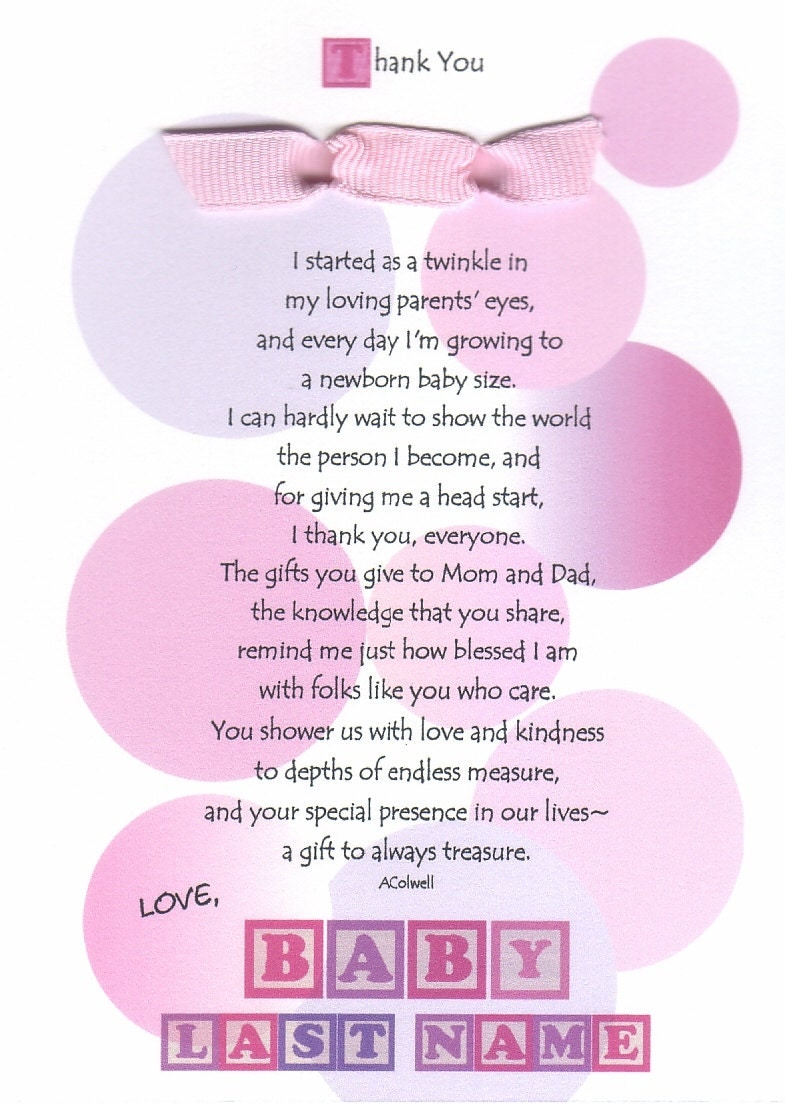 Thank You
I started as a twinkle in
my loving parents' eyes,
and every day I'm growing to
a newborn baby size.
I can hardly wait to show the world
the person I become, and
for giving me a head start,
I thank you, everyone.
The gifts you give to Mom and Dad,
the knowledge that you share,
remind me just how blessed I am
with folks like you who care.
You shower us with love and kindness
to depths of endless measure,
and your special presence in our lives~
a gift to always treasure.
AColwell
LOVE,
BABY
LAST NAME